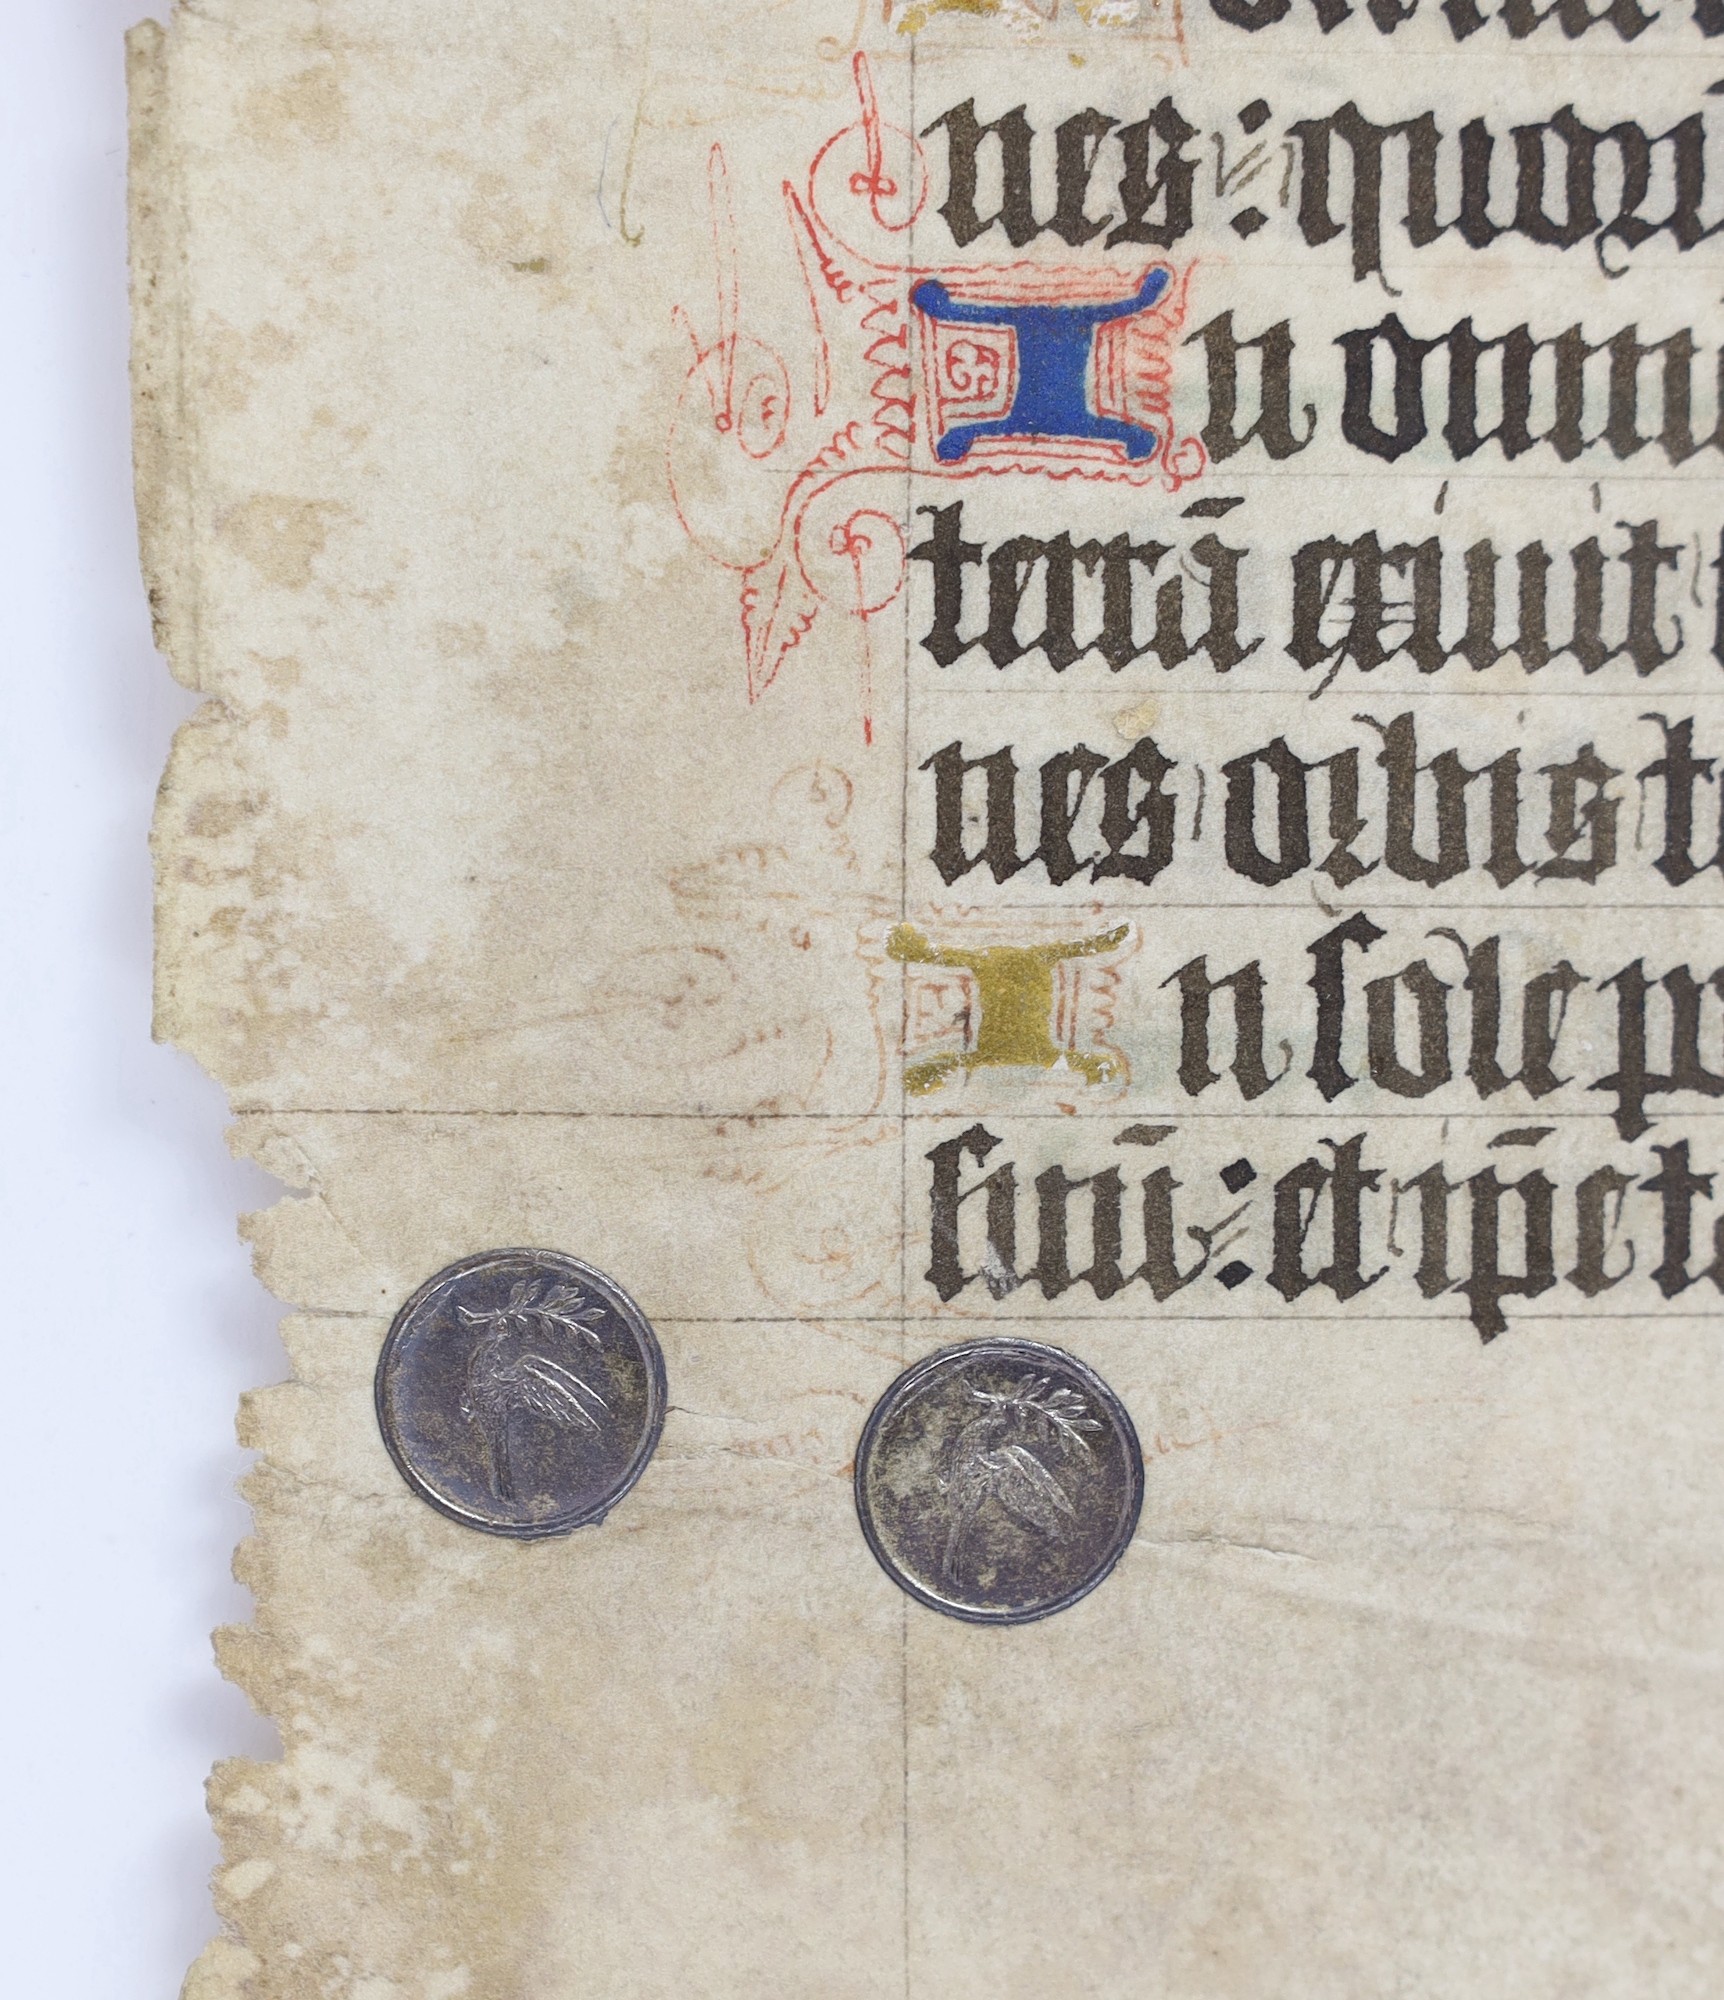 nes : quorū
In omne
terrā exiuit
nes orbis t
In sole p
suū : et ip̄e ta